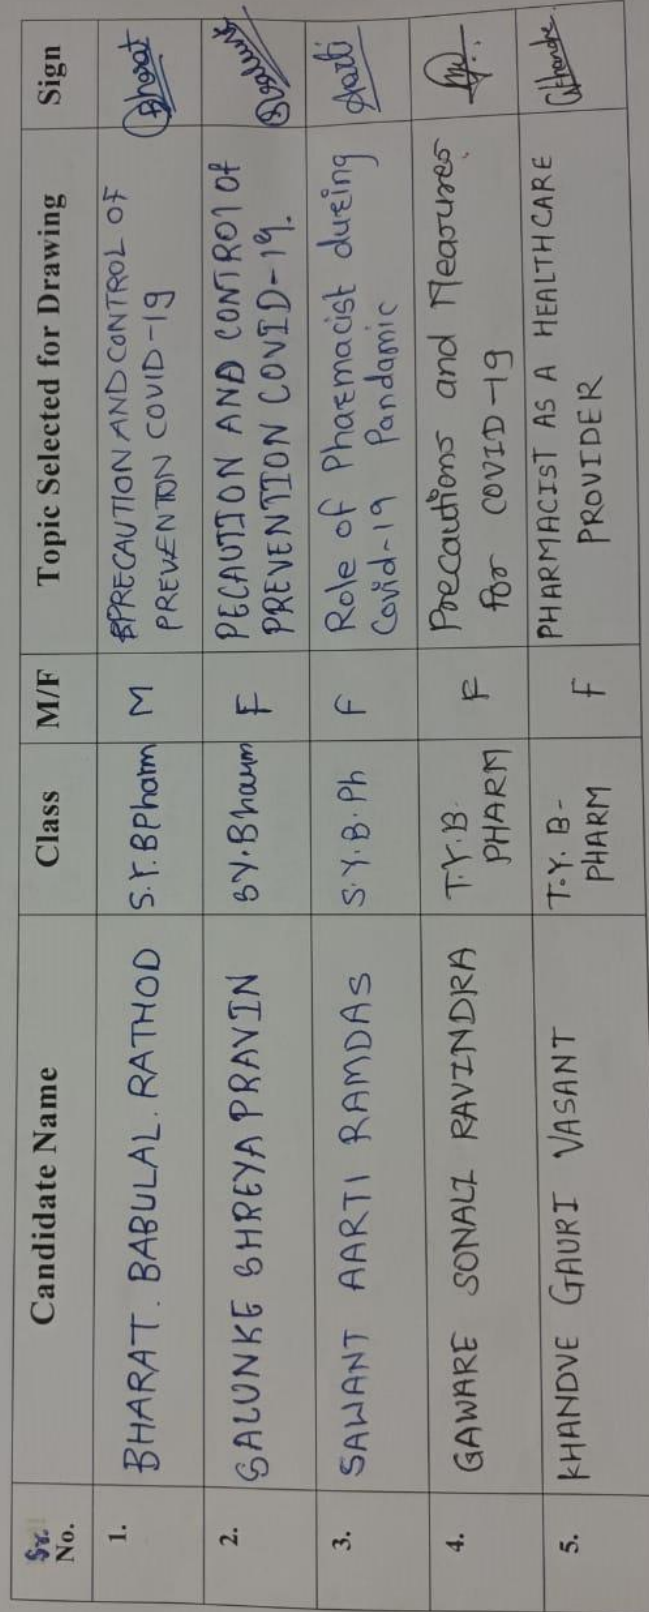 Sr. No. Candidate Name Class M/F Topic Selected for Drawing Sign
1. BHARAT. BABULAL. RATHOD S.Y.BPharm M PRECAUTION AND CONTROL OF
PREVENTON COVID-19 Bharat
2. SALUNKE SHREYA PRAVIN SY.Bharm F PECAUTION AND CONTROl Of
PREVENTION COVID-19.
3. SAWANT AARTI RAMDAS S.Y.B.Ph F Role of Pharmacist during
Covid-19 Pandamic Aarti
4. GAWARE SONALI RAVINDRA T.Y.B. PHARM F Precautions and Measures
for COVID-19
5. KHANDVE GAURI VASANT T.Y. B- PHARM F PHARMACIST AS A HEALTHCARE
PROVIDER